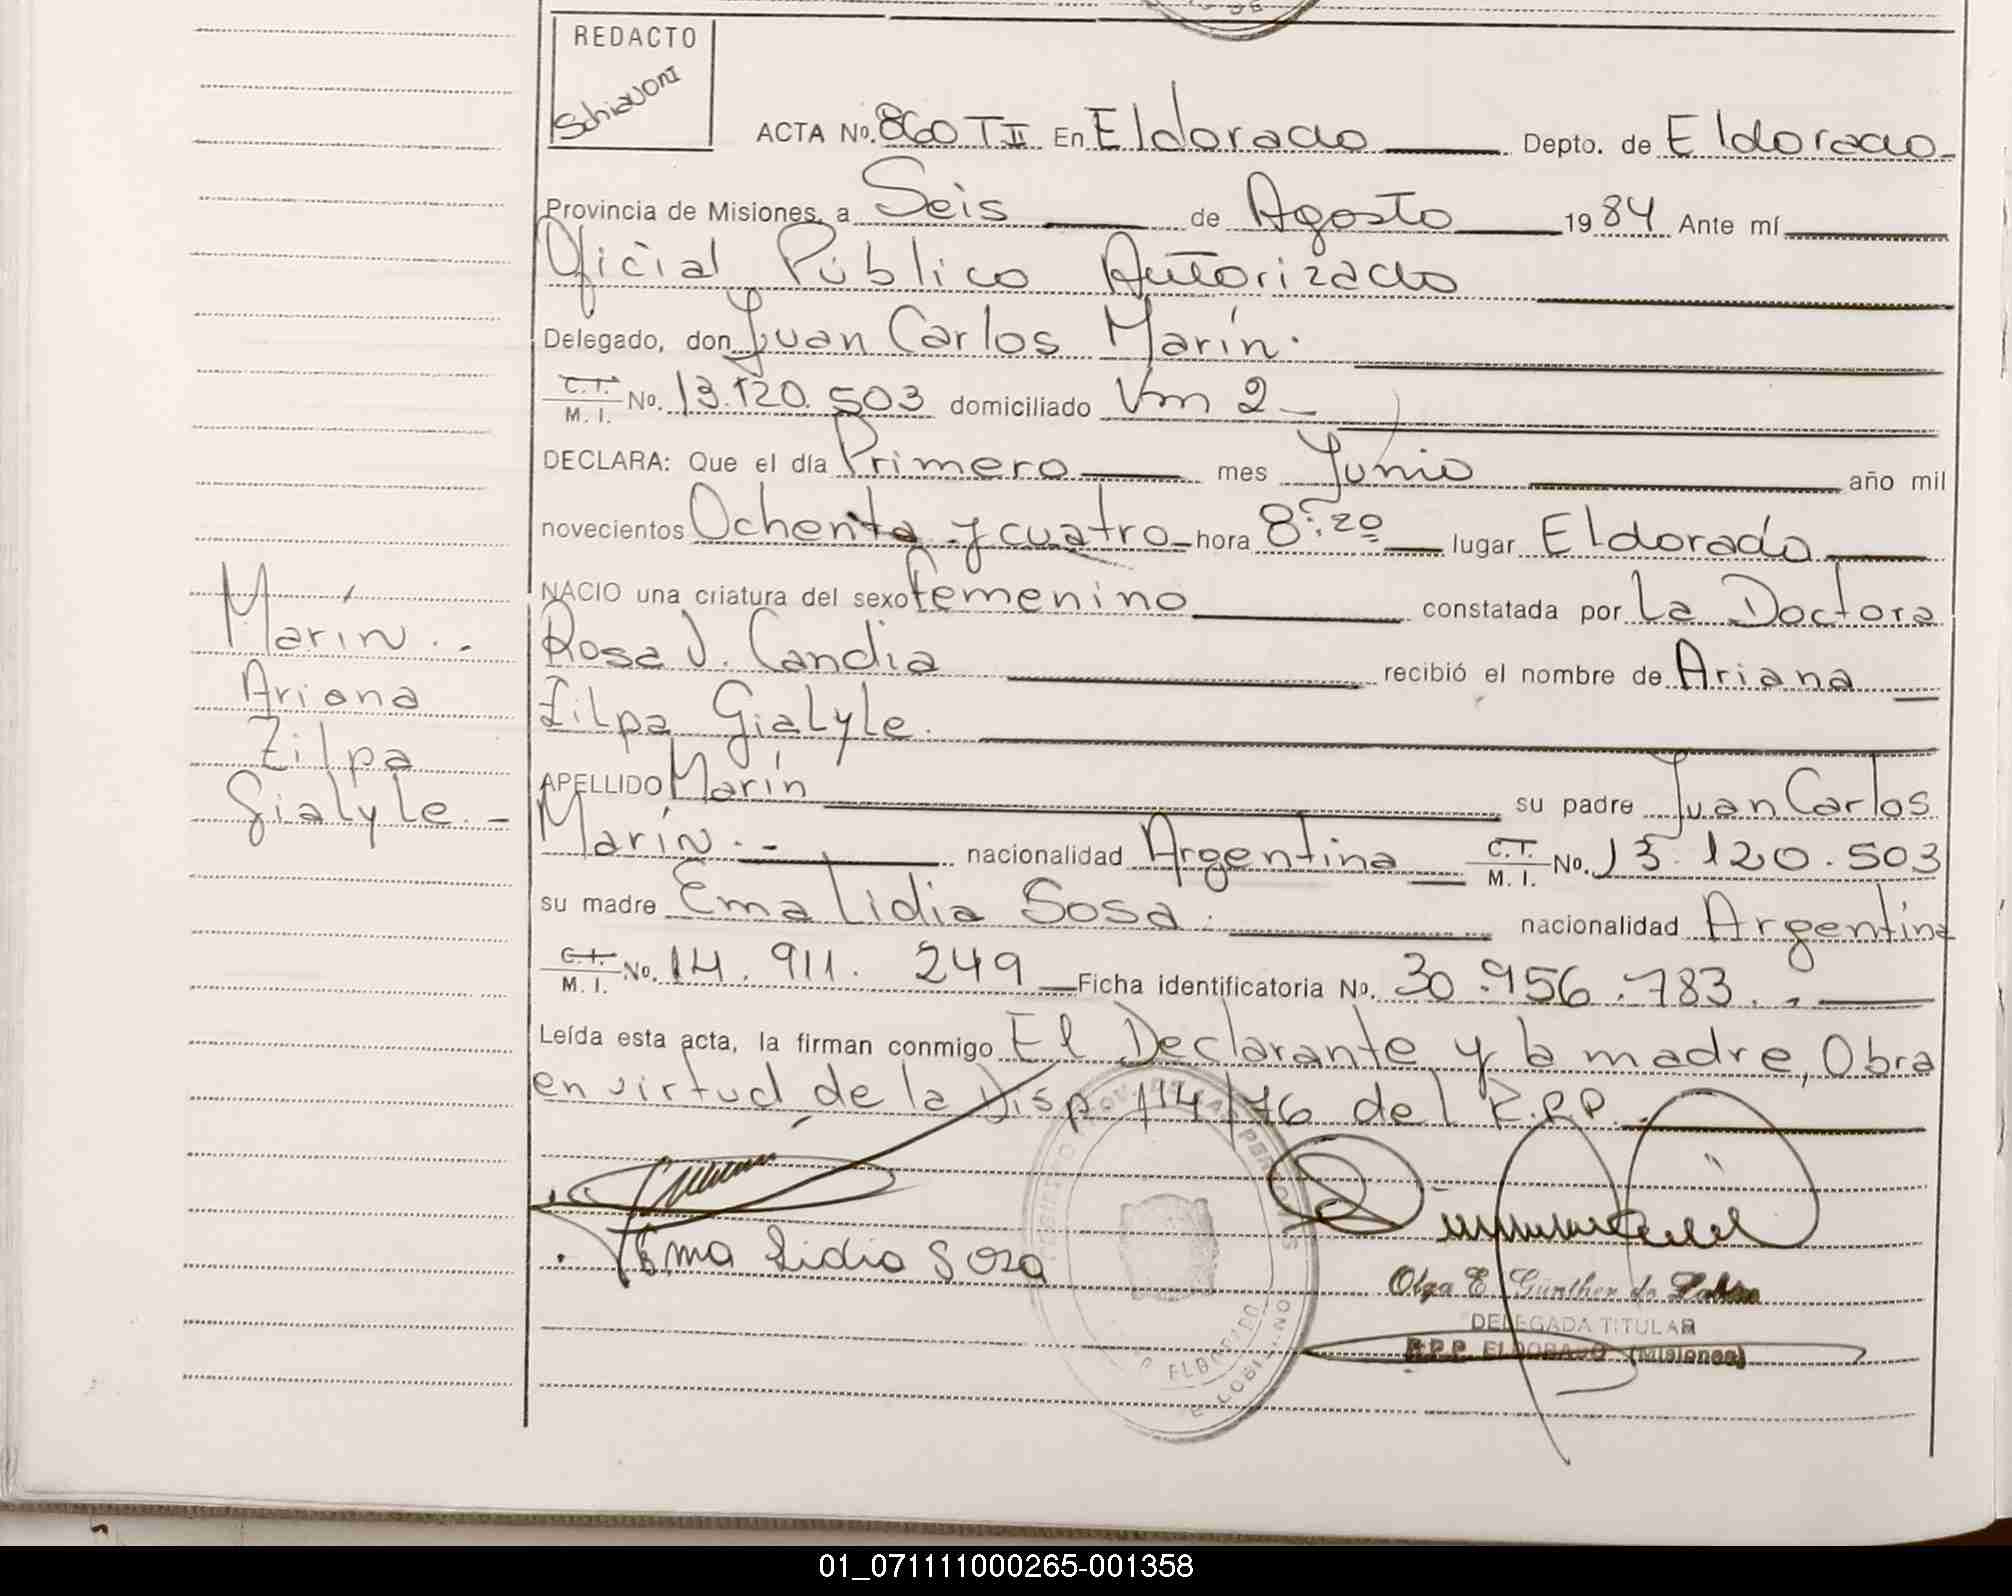 REDACTO
Schiavoni
ACTA No. 860 T II En Eldorado Depto. de Eldorado
Provincia de Misiones, a Seis de Agosto 1984 Ante mí
Oficial Público Autorizado
Delegado, don Juan Carlos Marín.
C.I. M. I. No. 13.120.503 domiciliado Km 2
DECLARA: Que el día Primero mes Junio año mil
novecientos Ochenta y cuatro hora 8:20 lugar Eldorado
NACIO una criatura del sexo femenino constatada por La Doctora
Rosa J. Candia recibió el nombre de Ariana
Zilpa Gialyle.
APELLIDO Marín su padre Juan Carlos
Marín.- nacionalidad Argentina C.I. M. I. No. 13.120.503
su madre Ema Lidia Sosa. nacionalidad Argentina
C.I. M. I. No. 14.911.249 Ficha identificatoria No. 30.956.783.-
Leída esta acta, la firman conmigo El Declarante y la madre, Obra
en virtud de la Disp 114/76 del R.P.P.
Marín.-
Ariana
Zilpa
Gialyle.-
Ema Lidia Sosa
Olga E. Günther de
DELEGADA TITULAR
R.P.P. ELDORADO (Misiones)
ELDORADO
01_071111000265-001358